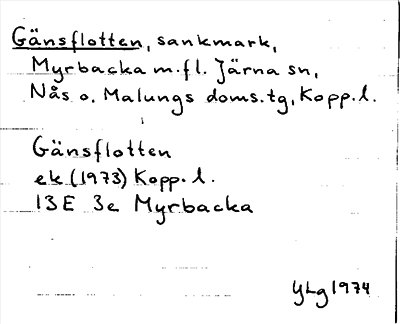 Gänsflotten, sankmark,
Myrbacka m.fl. Järna sn,
Nås o. Malungs doms.tg, Kopp.l.
Gänsflotten
ek (1973) Kopp.l.
13E 3e Myrbacka
YLg 1974